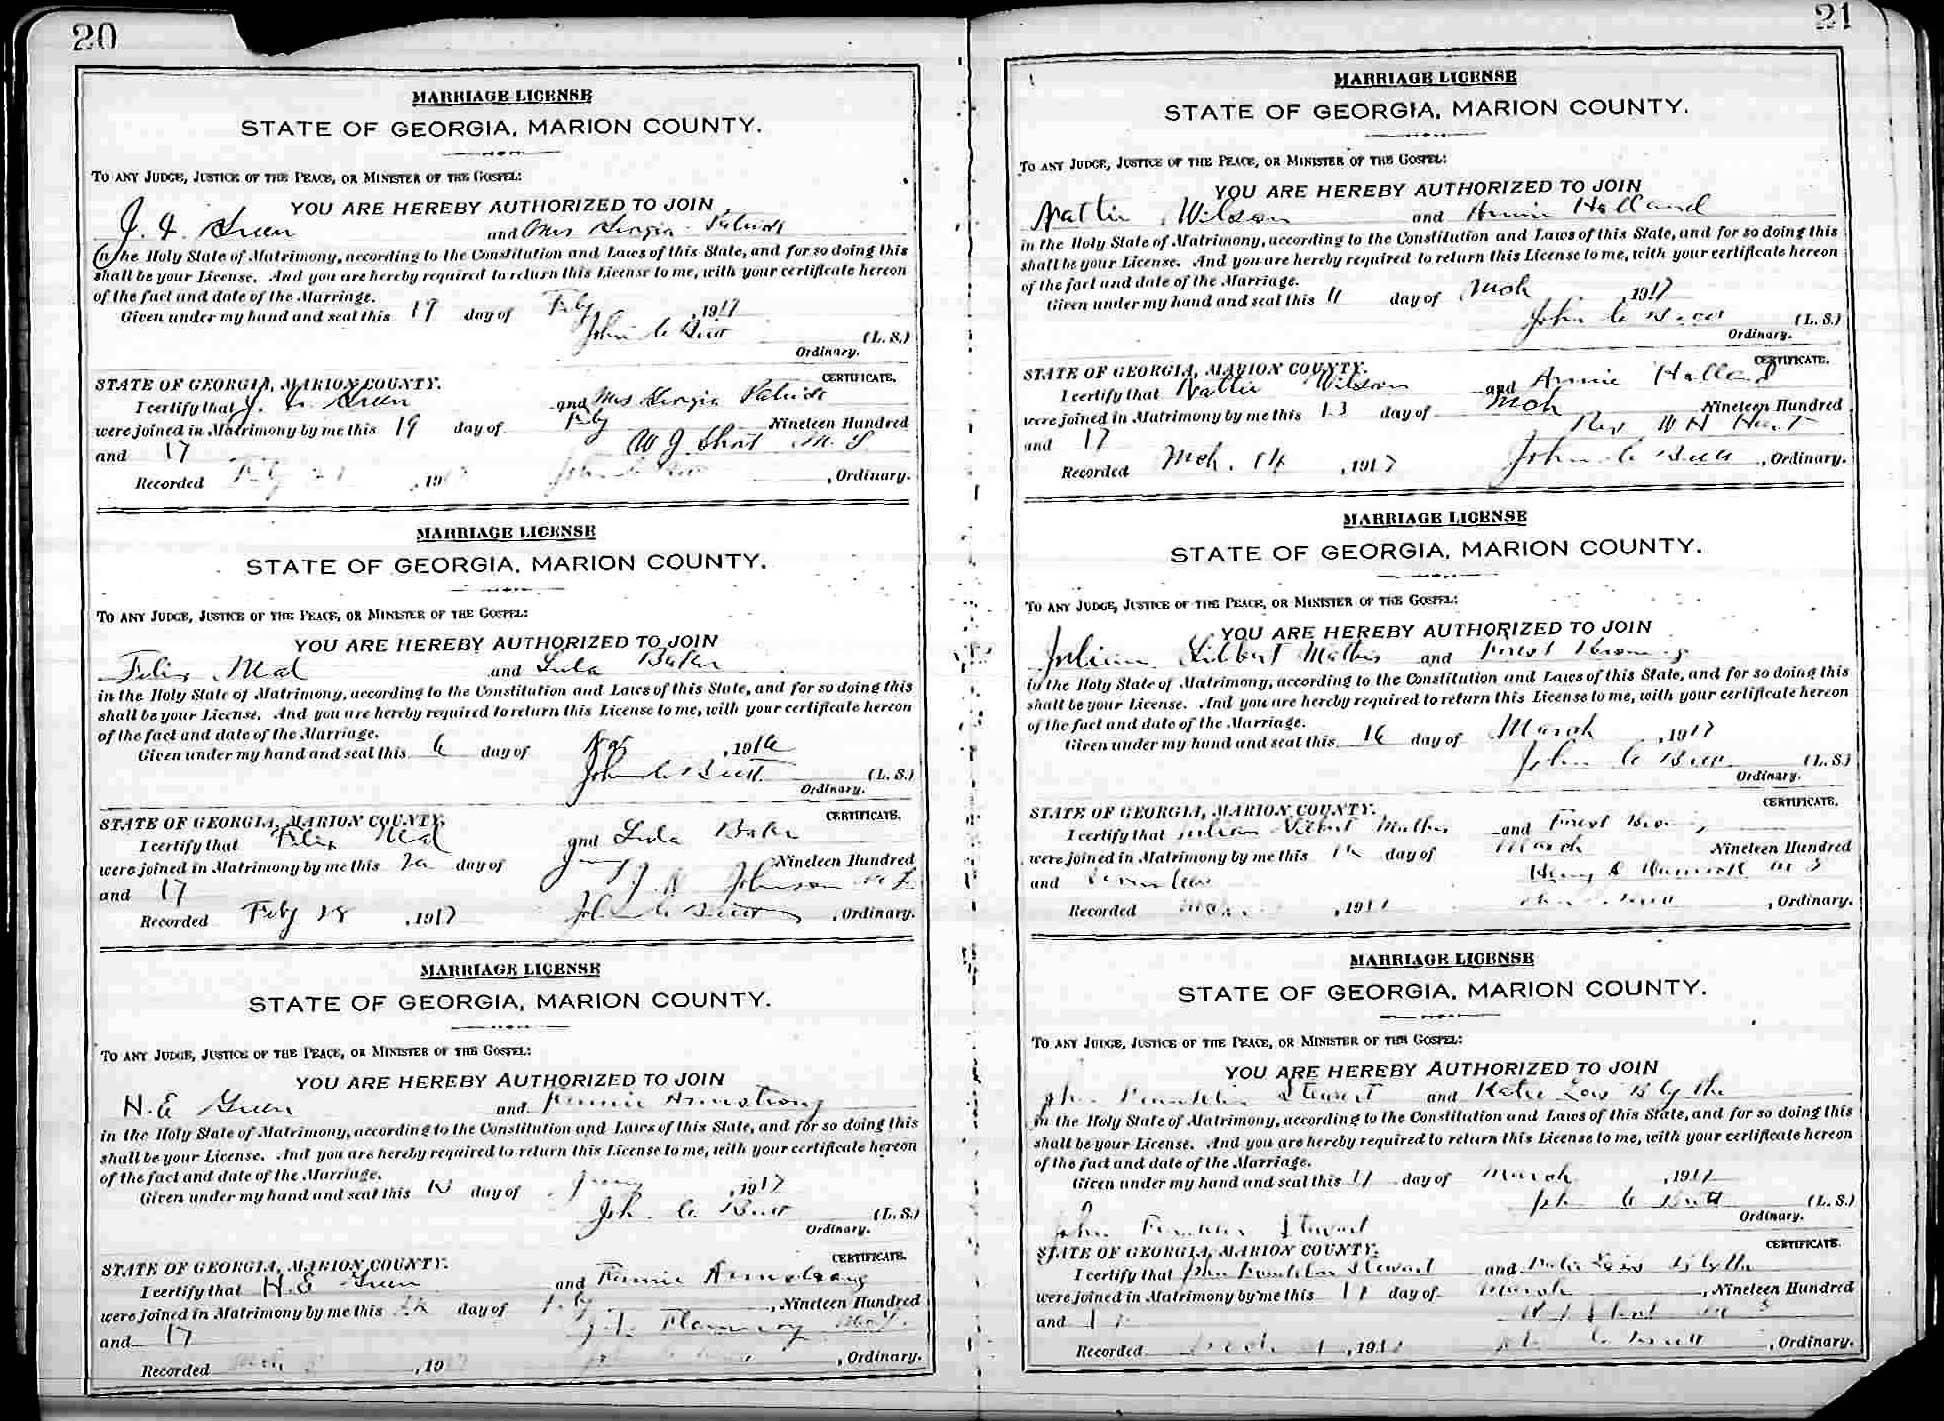 20
MARRIAGE LICENSE
STATE OF GEORGIA, MARION COUNTY.
TO ANY JUDGE, JUSTICE OF THE PEACE, OR MINISTER OF THE GOSPEL:
YOU ARE HEREBY AUTHORIZED TO JOIN
Green and Mrs Georgia Patrick
in the Holy State of Matrimony, according to the Constitution and Laws of this State, and for so doing this
shall be your License. And you are hereby required to return this License to me, with your certificate hereon
of the fact and date of the Marriage.
Given under my hand and seal this 19 day of Feby, 1917
John C Butt (L. S.)
Ordinary.
CERTIFICATE.
STATE OF GEORGIA, MARION COUNTY.
I certify that Green and Mrs Georgia Patrick
were joined in Matrimony by me this 19 day of Feby Nineteen Hundred
and 17 W J Short M. G.
Recorded Feby , 19 John C Butt, Ordinary.
MARRIAGE LICENSE
STATE OF GEORGIA, MARION COUNTY.
TO ANY JUDGE, JUSTICE OF THE PEACE, OR MINISTER OF THE GOSPEL:
YOU ARE HEREBY AUTHORIZED TO JOIN
Felix Neal and Lula Baker
in the Holy State of Matrimony, according to the Constitution and Laws of this State, and for so doing this
shall be your License. And you are hereby required to return this License to me, with your certificate hereon
of the fact and date of the Marriage.
Given under my hand and seal this 6 day of Nov, 1916
John C Butt (L. S.)
Ordinary.
CERTIFICATE.
STATE OF GEORGIA, MARION COUNTY.
I certify that Felix Neal and Lula Baker
were joined in Matrimony by me this day of Nineteen Hundred
and 17 Johnson
Recorded Feby 28, 1917 John C Butt, Ordinary.
MARRIAGE LICENSE
STATE OF GEORGIA, MARION COUNTY.
TO ANY JUDGE, JUSTICE OF THE PEACE, OR MINISTER OF THE GOSPEL:
YOU ARE HEREBY AUTHORIZED TO JOIN
H. E Green and Fannie Armstrong
in the Holy State of Matrimony, according to the Constitution and Laws of this State, and for so doing this
shall be your License. And you are hereby required to return this License to me, with your certificate hereon
of the fact and date of the Marriage.
Given under my hand and seal this day of , 1917
John C. Butt (L. S.)
Ordinary.
CERTIFICATE.
STATE OF GEORGIA, MARION COUNTY.
I certify that H. E Green and Fannie Armstrong
were joined in Matrimony by me this day of Feby, Nineteen Hundred
and 17 Flannery
Recorded , 19 , Ordinary.
21
MARRIAGE LICENSE
STATE OF GEORGIA, MARION COUNTY.
TO ANY JUDGE, JUSTICE OF THE PEACE, OR MINISTER OF THE GOSPEL:
YOU ARE HEREBY AUTHORIZED TO JOIN
Wilson and Annie Holland
in the Holy State of Matrimony, according to the Constitution and Laws of this State, and for so doing this
shall be your License. And you are hereby required to return this License to me, with your certificate hereon
of the fact and date of the Marriage.
Given under my hand and seal this 11 day of Mch, 1917
John C Butt (L. S.)
Ordinary.
CERTIFICATE.
STATE OF GEORGIA, MARION COUNTY.
I certify that Wilson and Annie Holland
were joined in Matrimony by me this 13 day of Mch Nineteen Hundred
and 17 Rev W H
Recorded Mch. 14, 1917 John C Butt, Ordinary.
MARRIAGE LICENSE
STATE OF GEORGIA, MARION COUNTY.
TO ANY JUDGE, JUSTICE OF THE PEACE, OR MINISTER OF THE GOSPEL:
YOU ARE HEREBY AUTHORIZED TO JOIN
Julian Mathis and Forest
in the Holy State of Matrimony, according to the Constitution and Laws of this State, and for so doing this
shall be your License. And you are hereby required to return this License to me, with your certificate hereon
of the fact and date of the Marriage.
Given under my hand and seal this 16 day of March, 1917
John C Butt (L. S)
Ordinary.
CERTIFICATE.
STATE OF GEORGIA, MARION COUNTY.
I certify that Julian Mathis and Forest
were joined in Matrimony by me this day of March Nineteen Hundred
and Seventeen Henry
Recorded , 1917 , Ordinary.
MARRIAGE LICENSE
STATE OF GEORGIA, MARION COUNTY.
TO ANY JUDGE, JUSTICE OF THE PEACE, OR MINISTER OF THE GOSPEL:
YOU ARE HEREBY AUTHORIZED TO JOIN
John Franklin Stewart and Katie Lois Blythe
in the Holy State of Matrimony, according to the Constitution and Laws of this State, and for so doing this
shall be your License. And you are hereby required to return this License to me, with your certificate hereon
of the fact and date of the Marriage.
Given under my hand and seal this day of March, 1917
John C Butt (L. S.)
Ordinary.
John Franklin Stewart
CERTIFICATE.
STATE OF GEORGIA, MARION COUNTY.
I certify that John Franklin Stewart and Katie Lois Blythe
were joined in Matrimony by me this day of March, Nineteen Hundred
and W J Short
Recorded , 191 C Butt, Ordinary.